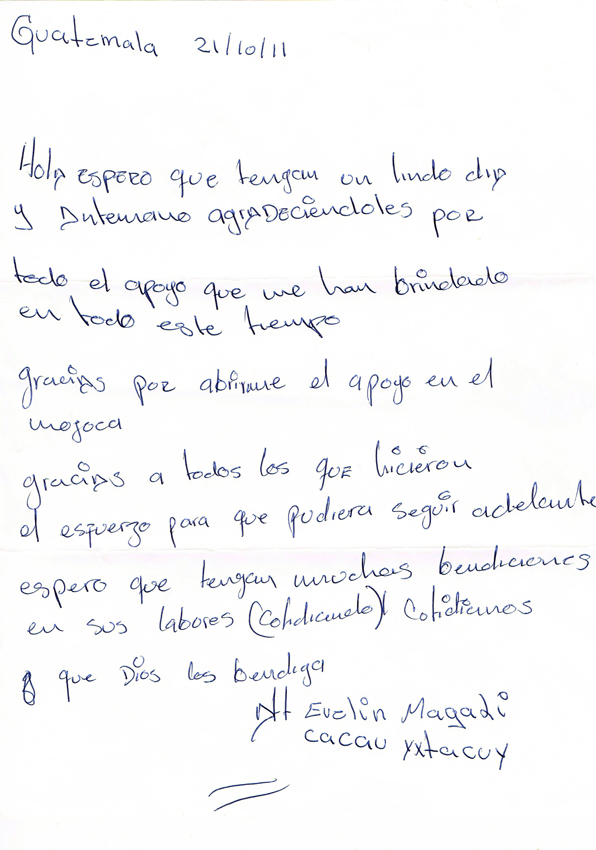 Guatemala 21/10/11
Hola espero que tengan un lindo dia
y Antemano agradeciendoles por
todo el apoyo que me han brindado
en todo este tiempo
gracias por abrirme el apoyo en el
mojoca
gracias a todos los que hicierón
el esfuerzo para que pudiera seguir adelante
espero que tengan muchas bendiciones
en sus labores (cotidiando) cotidianos
que Dios les bendiga
Att Evelin Magadi
cacau yxtacuy